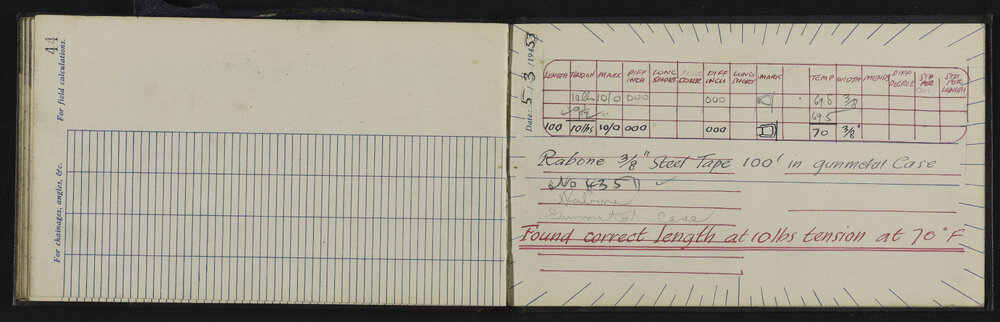 44
For field calculations.
For chainages, angles, &c.
Date: 5/3/1953
LENGTH TENSION MARK DIFF INCH LONG SHORT DIFF INCH LONG SHORT MARK TEMP WIDTH MENDS DIFF DEGREE STD PER LENGTH
10 lbs 10/0 000 000 69.8 3/8
9 1/2 69.5
100 10 lbs 10/0 000 000 70 3/8"
Rabone 3/8" Steel Tape 100' in gunmetal Case
No 4357 ✓
Rabone
Gunmetal Case
Found correct length at 10 lbs tension at 70° F